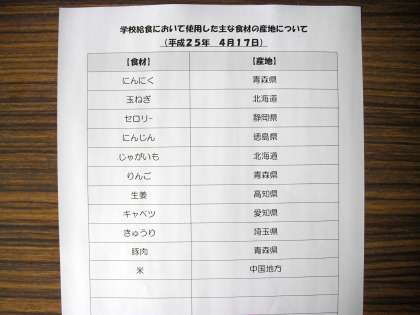 学校給食において使用した主な食材の産地について
(平成25年 4月17日)
【食材】 【産地】
にんにく 青森県
玉ねぎ 北海道
セロリー 静岡県
にんじん 徳島県
じゃがいも 北海道
りんご 青森県
生姜 高知県
キャベツ 愛知県
きゅうり 埼玉県
豚肉 青森県
米 中国地方